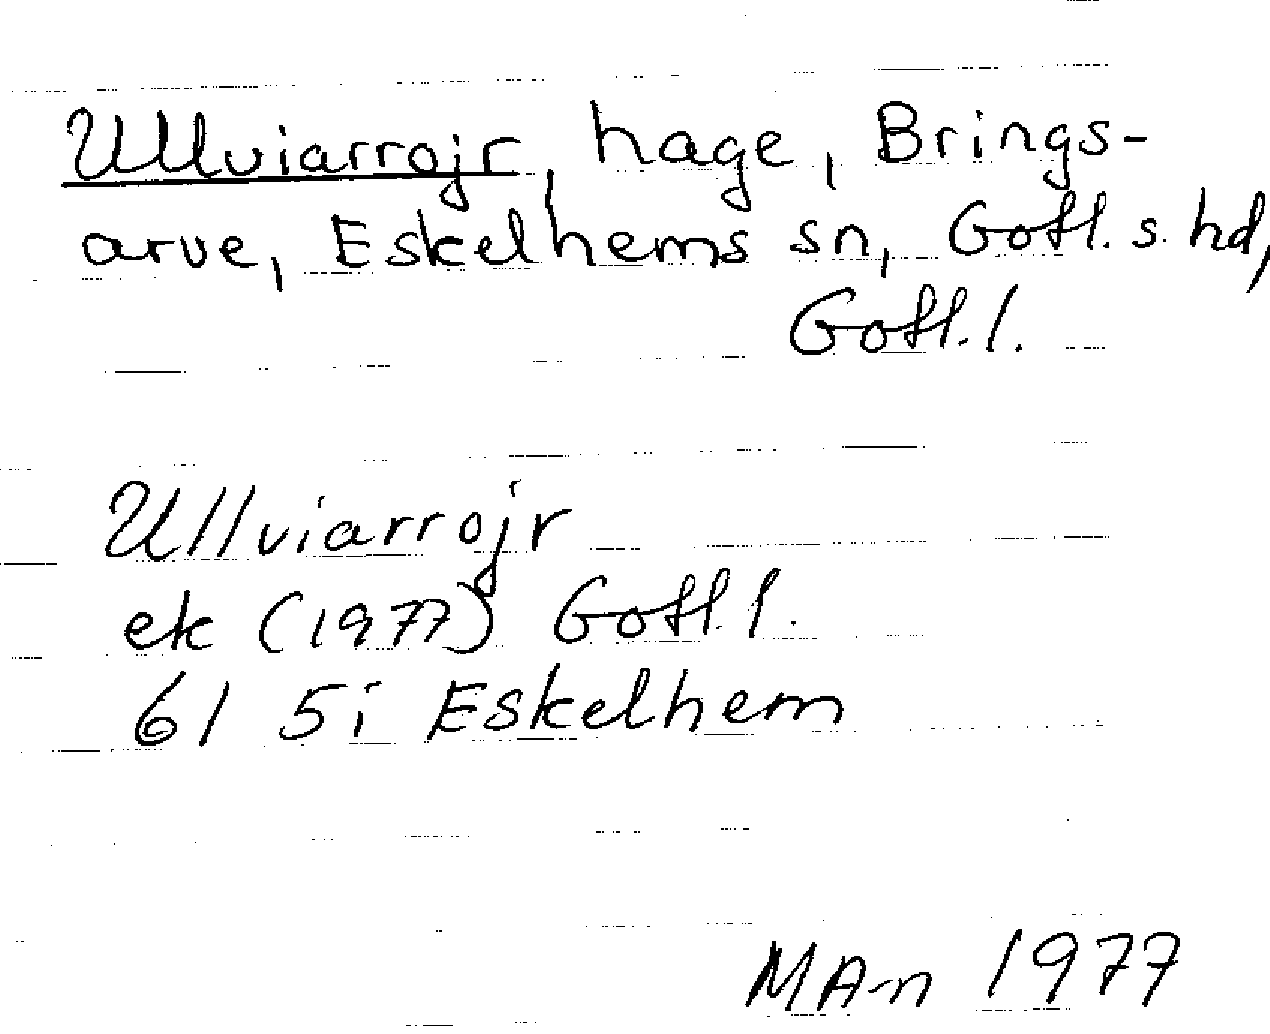 Ullviarrojr, hage, Brings-
arve, Eskelhems sn, Gotl. s. hd,
Gotl. l.
Ullviarrojr
ek (1977) Gotl. l.
61 5i Eskelhem
MAn 1977